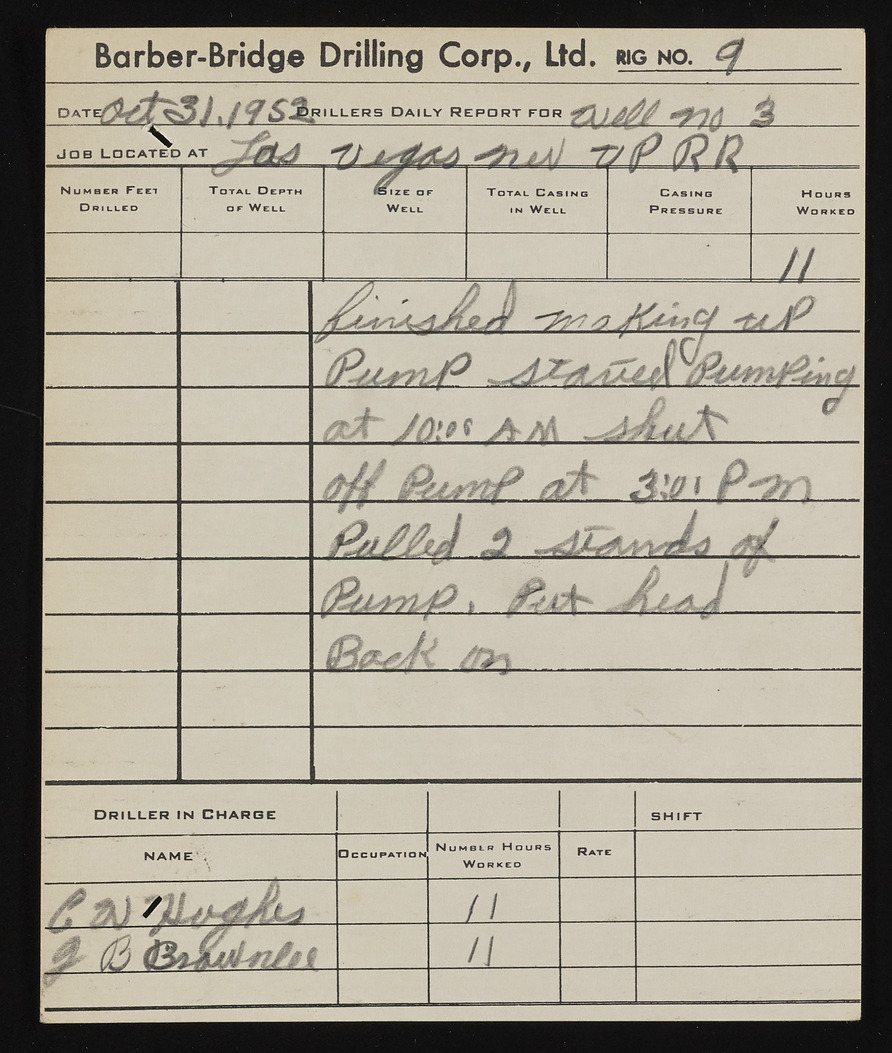 Barber-Bridge Drilling Corp., Ltd. RIG NO. 9
DATE Oct 31, 1952 DRILLERS DAILY REPORT FOR Well no 3
JOB LOCATED AT Las Vegas nev UP RR
NUMBER FEET DRILLED TOTAL DEPTH OF WELL SIZE OF WELL TOTAL CASING IN WELL CASING PRESSURE HOURS WORKED
11
finished making up
Pump stated Pumping
at 10:00 AM shut
off Pump at 3:01 Pm
Pulled 2 stands of
Pump. Put head
Back on
DRILLER IN CHARGE SHIFT
NAME OCCUPATION NUMBER HOURS WORKED RATE
C W Hughes 11
J B Brownlee 11